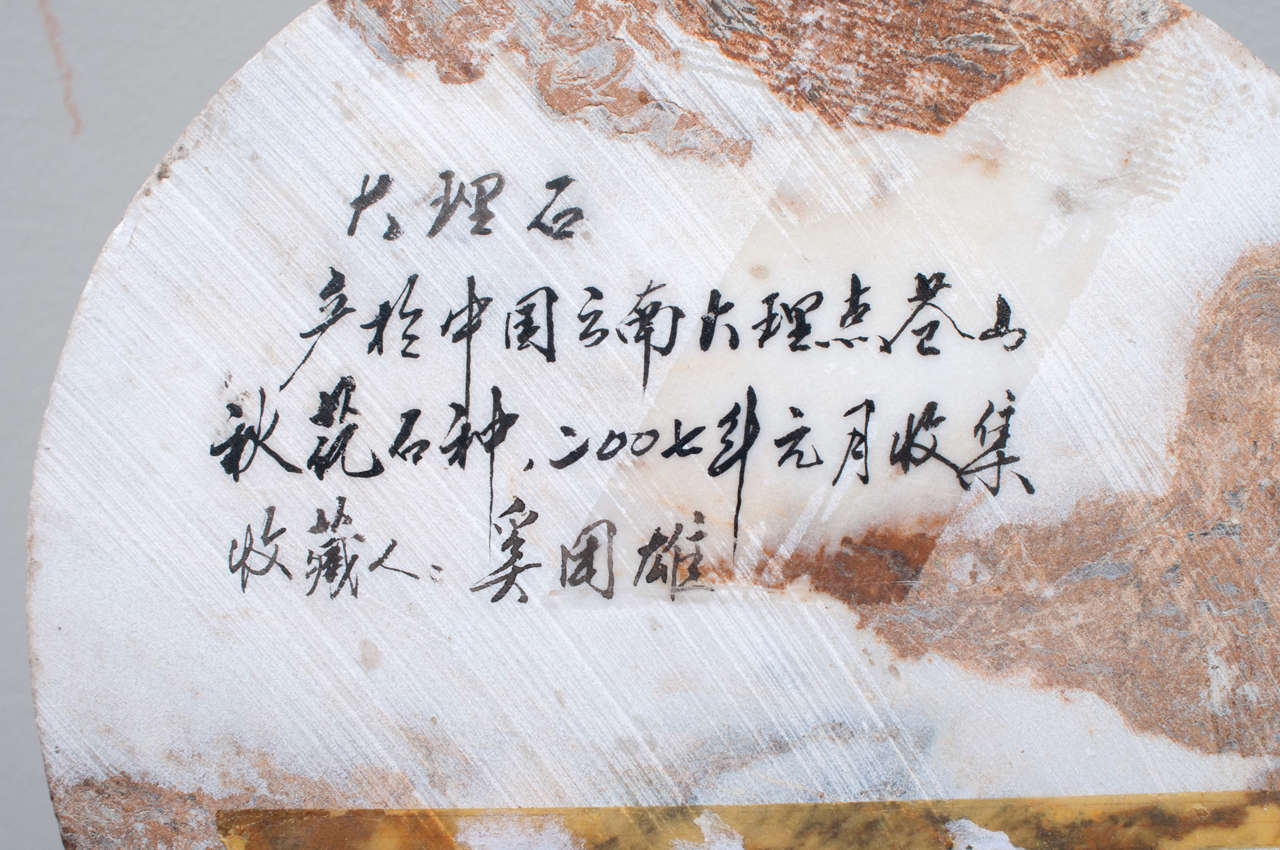 大理石
产於中国云南大理点苍山
秋花石种,二00七年元月收集
收藏人:奚国雄